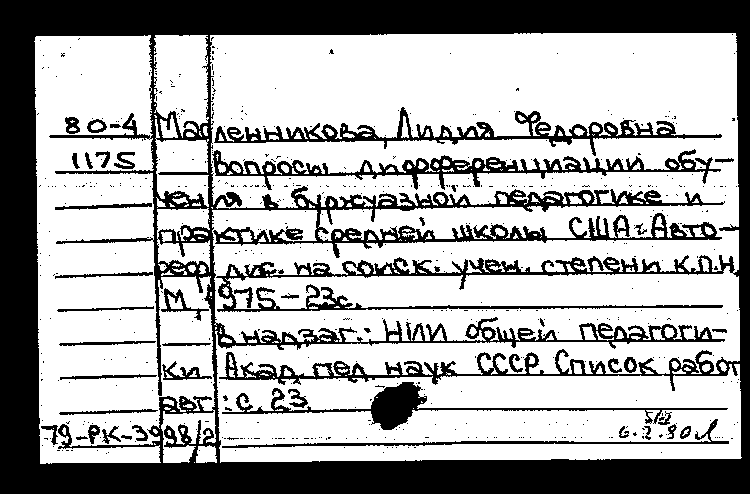 80-4 Масленникова, Лидия Федоровна
1175 Вопросы дифференциации обу-
чения в буржуазной педагогике и
практике средней школы США: Авто-
реф. дис. на соиск. учен. степени к.п.н.
М., 1975.-23с.
В надзаг.: НИИ общей педагоги-
ки Акад. пед. наук СССР. Список работ
авт.: с. 23.
79-РК-3998/2
6.2.80